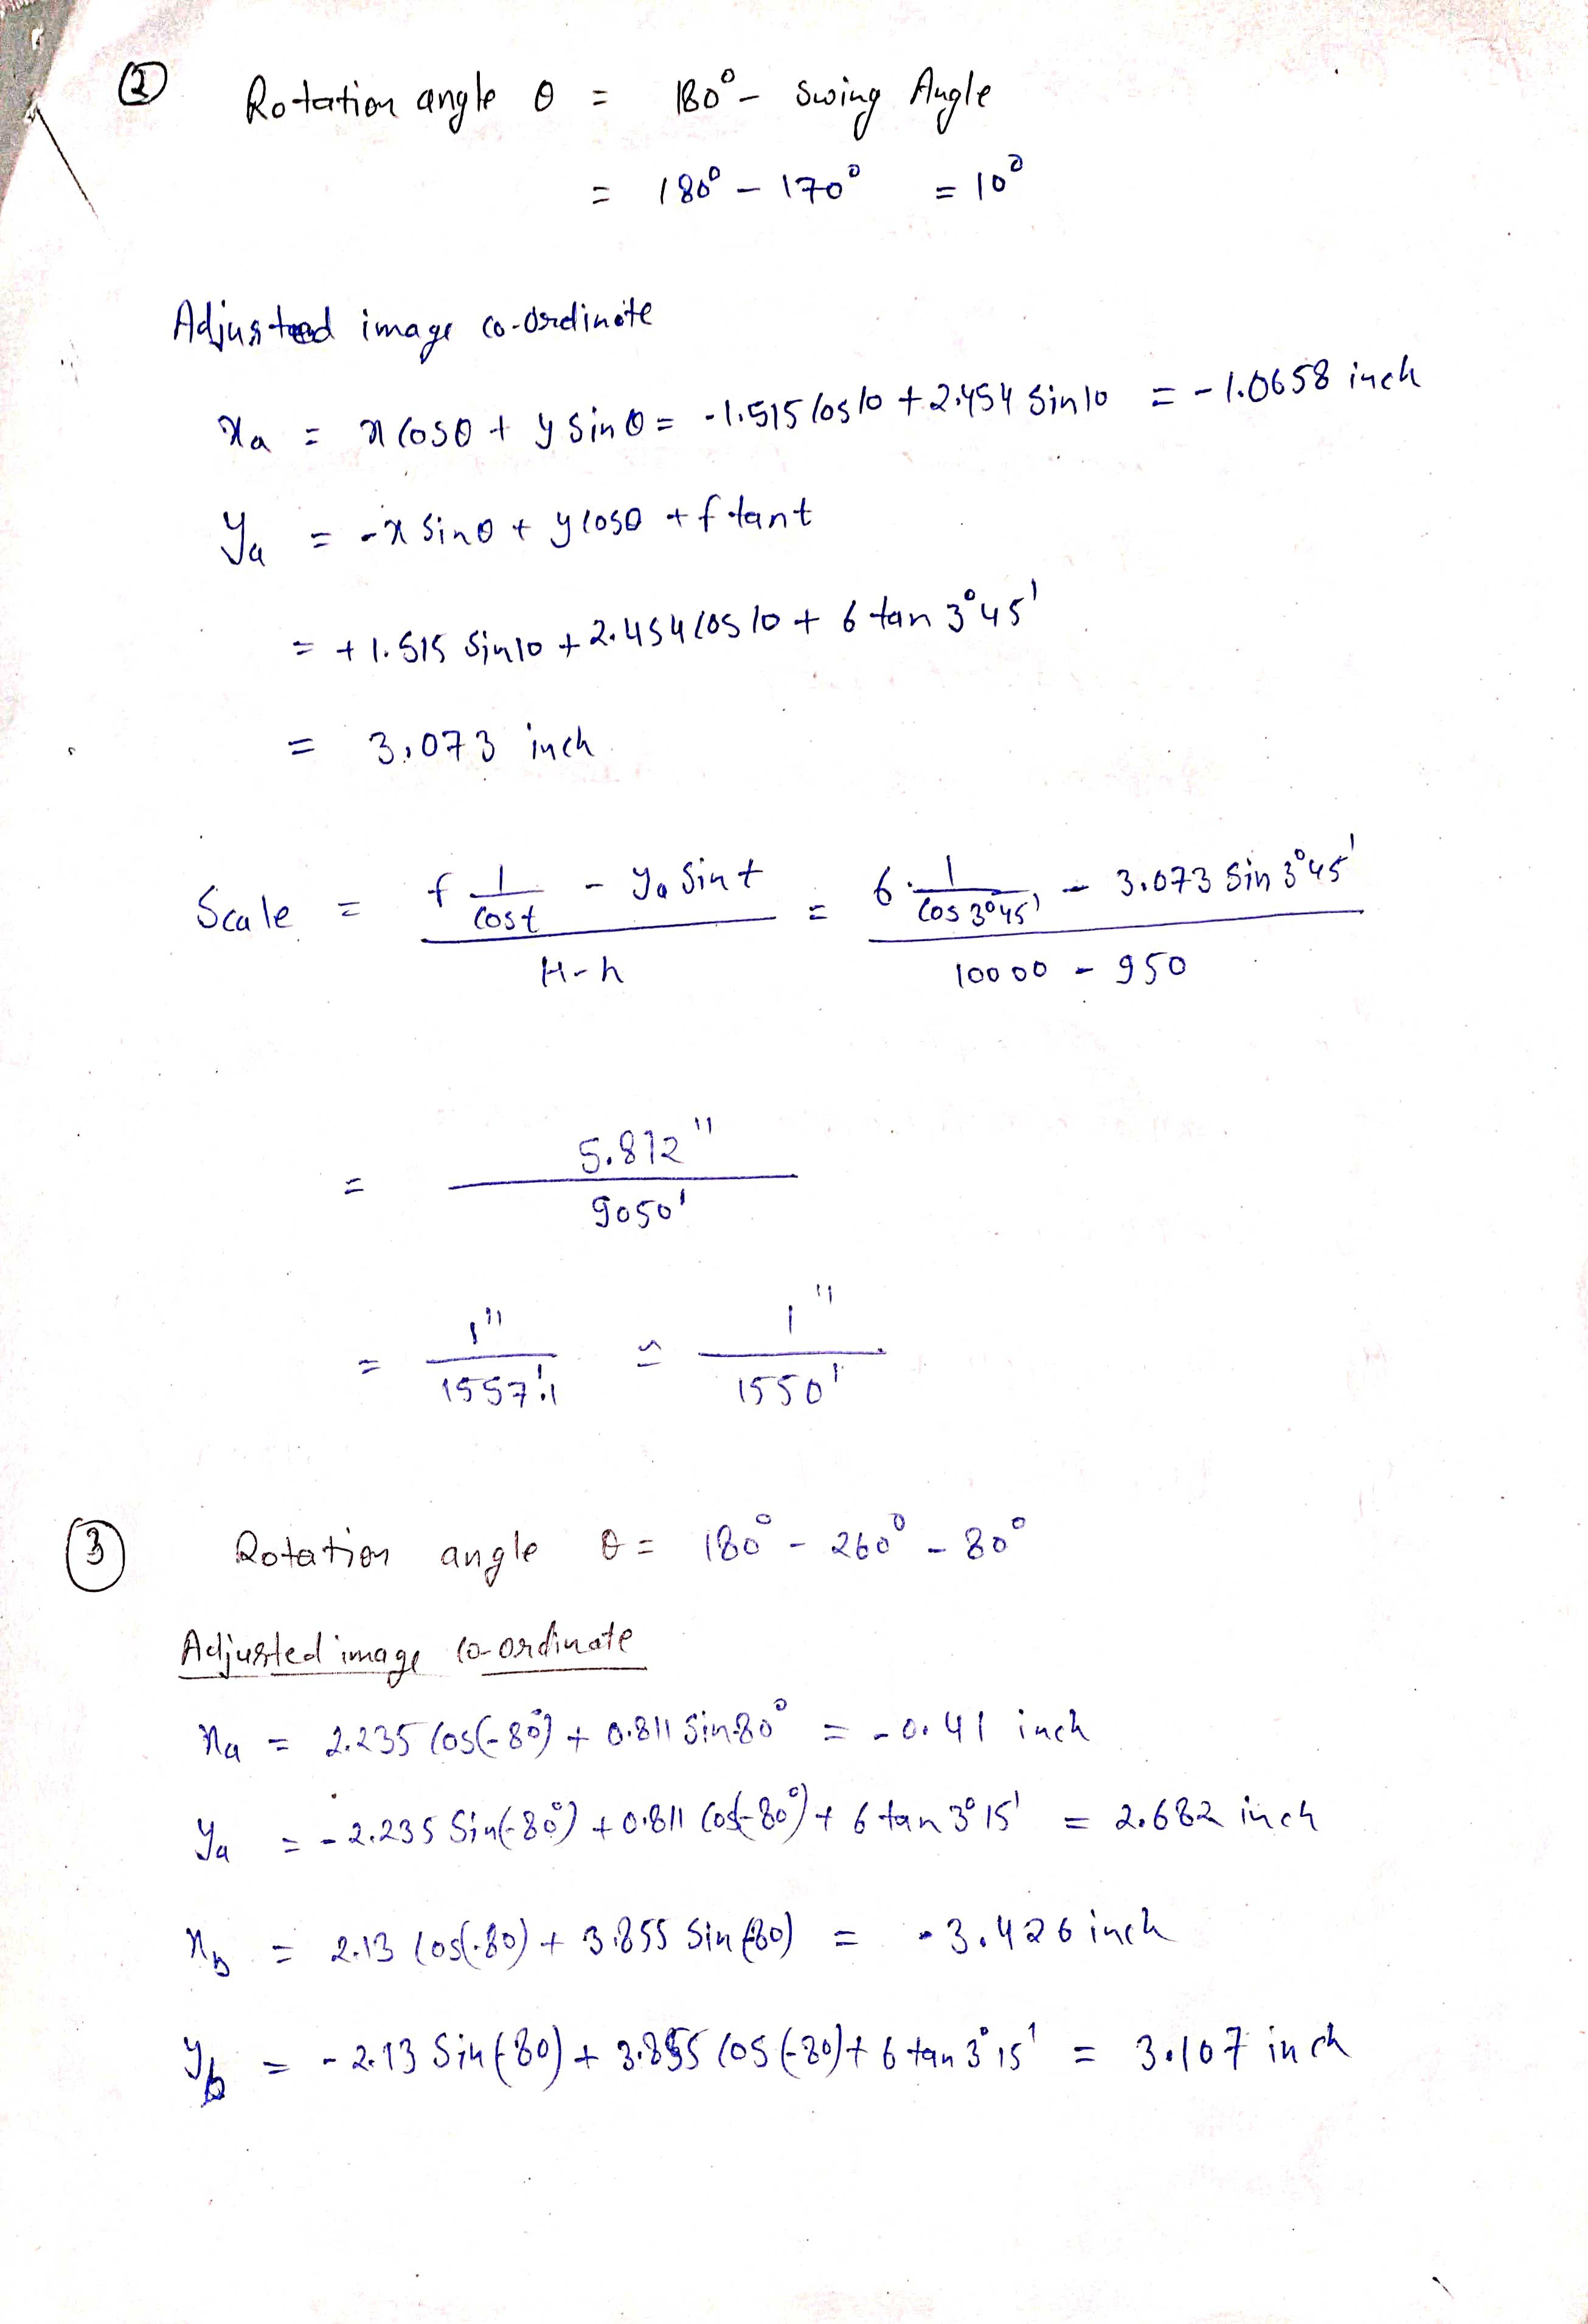 ② Rotation angle θ = 180° - Swing Angle
= 180° - 170° = 10°
Adjusted image co-ordinate
xa = x cosθ + y sinθ = -1.515 cos10 + 2.454 sin10 = -1.0658 inch
ya = -x sinθ + y cosθ + f tant
= +1.515 sin10 + 2.454 cos10 + 6 tan 3°45'
= 3.073 inch
Scale = (f 1/cost - ya sint)/(H-h) = (6·1/cos3°45' - 3.073 sin3°45')/(10000 - 950)
= 5.812"/9050'
= 1"/1557'.1 ≃ 1"/1550'
③ Rotation angle θ = 180° - 260° - 80°
Adjusted image co-ordinate
xa = 2.235 cos(-80°) + 0.811 sin-80° = -0.41 inch
ya = -2.235 sin(-80°) + 0.811 cos(-80°) + 6 tan 3°15' = 2.682 inch
xb = 2.13 cos(-80) + 3.855 sin(-80) = -3.426 inch
yb = -2.13 sin(-80) + 3.855 cos(-80) + 6 tan 3°15' = 3.107 inch